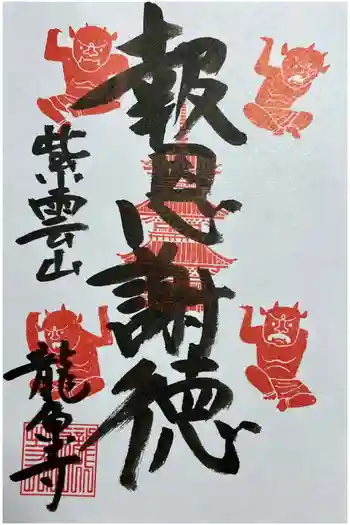 報恩謝徳
紫雲山
龍寺